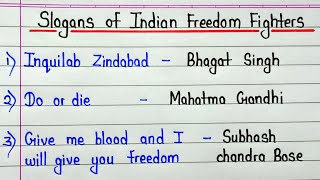 Slogans of Indian Freedom Fighters
1) Inquilab Zindabad - Bhagat Singh
2) Do or die - Mahatma Gandhi
3) Give me blood and I - Subhash
will give you freedom chandra Bose